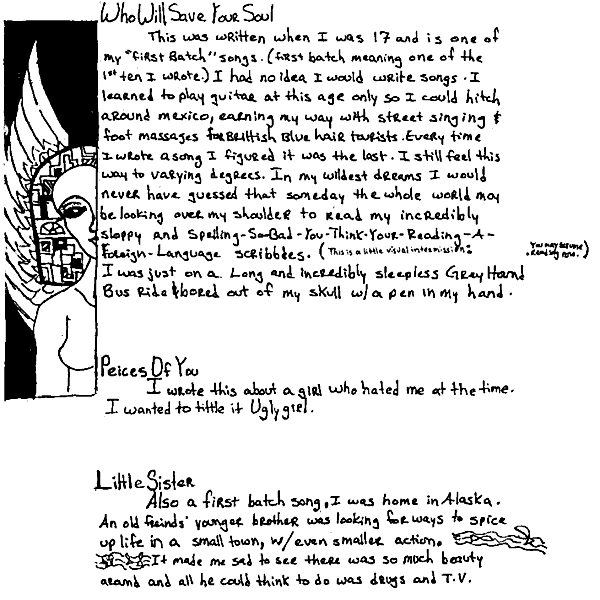 Who Will Save Your Soul
This was written when I was 17 and is one of
my "first Batch" songs. (first batch meaning one of the
1st ten I wrote.) I had no idea I would write songs. I
learned to play guitar at this age only so I could hitch
around mexico, earning my way with street singing &
foot massages for Brittish Blue hair tourists. Every time
I wrote a song I figured it was the last. I still feel this
way to varying degrees. In my wildest dreams I would
never have guessed that someday the whole world may
be looking over my shoulder to read my incredibly
sloppy and Spelling-So-Bad-You-Think-Your-Reading-A-
Foreign-Language scribbles. (This is a little visual intermission. You may resume reading now.)
I was just on a Long and incredibly sleepless Grey Hound
Bus Ride & bored out of my skull w/a pen in my hand.
Peices Of You
I wrote this about a girl who hated me at the time.
I wanted to tittle it Ugly girl.
Little Sister
Also a first batch song, I was home in Alaska.
An old freinds' younger brother was looking for ways to spice
up life in a small town, w/even smaller action.
It made me sad to see there was so much beauty
around and all he could think to do was drugs and T.V.